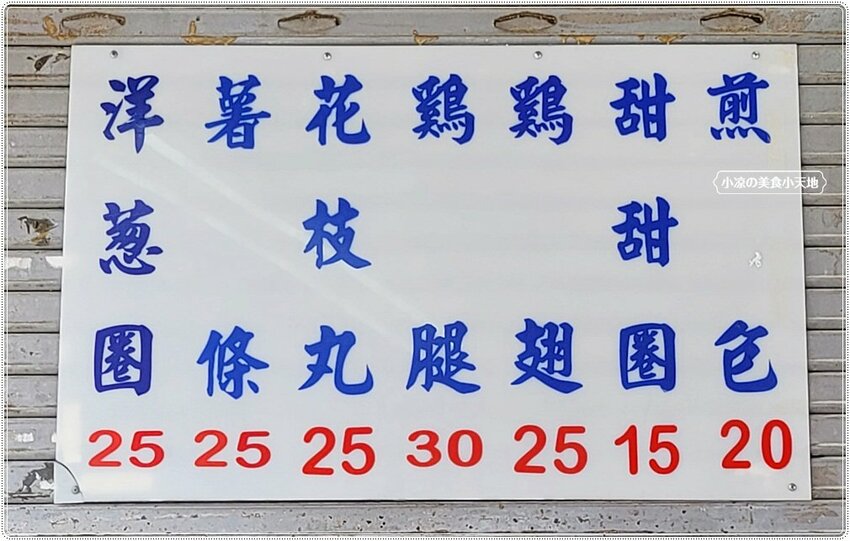 煎包 20
甜甜圈 15
鷄翅 25
鷄腿 30
花枝丸 25
薯條 25
洋葱圈 25
小凉の美食小天地